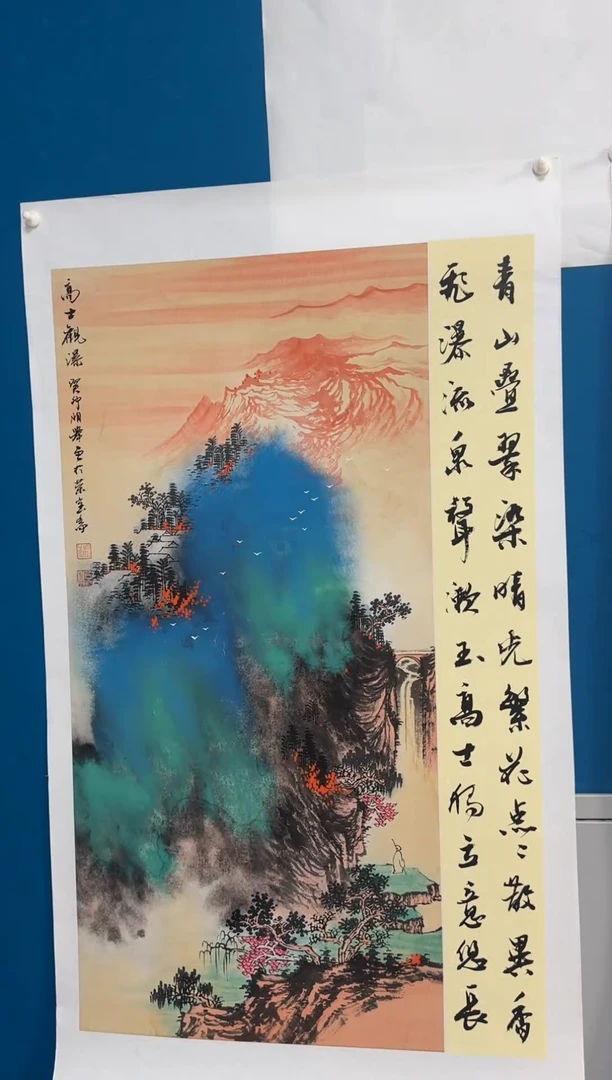 青山疊翠染晴光繁花点点散異香
飛瀑流泉聲漱玉高士獨立意悠長
高士觀瀑 癸卯月